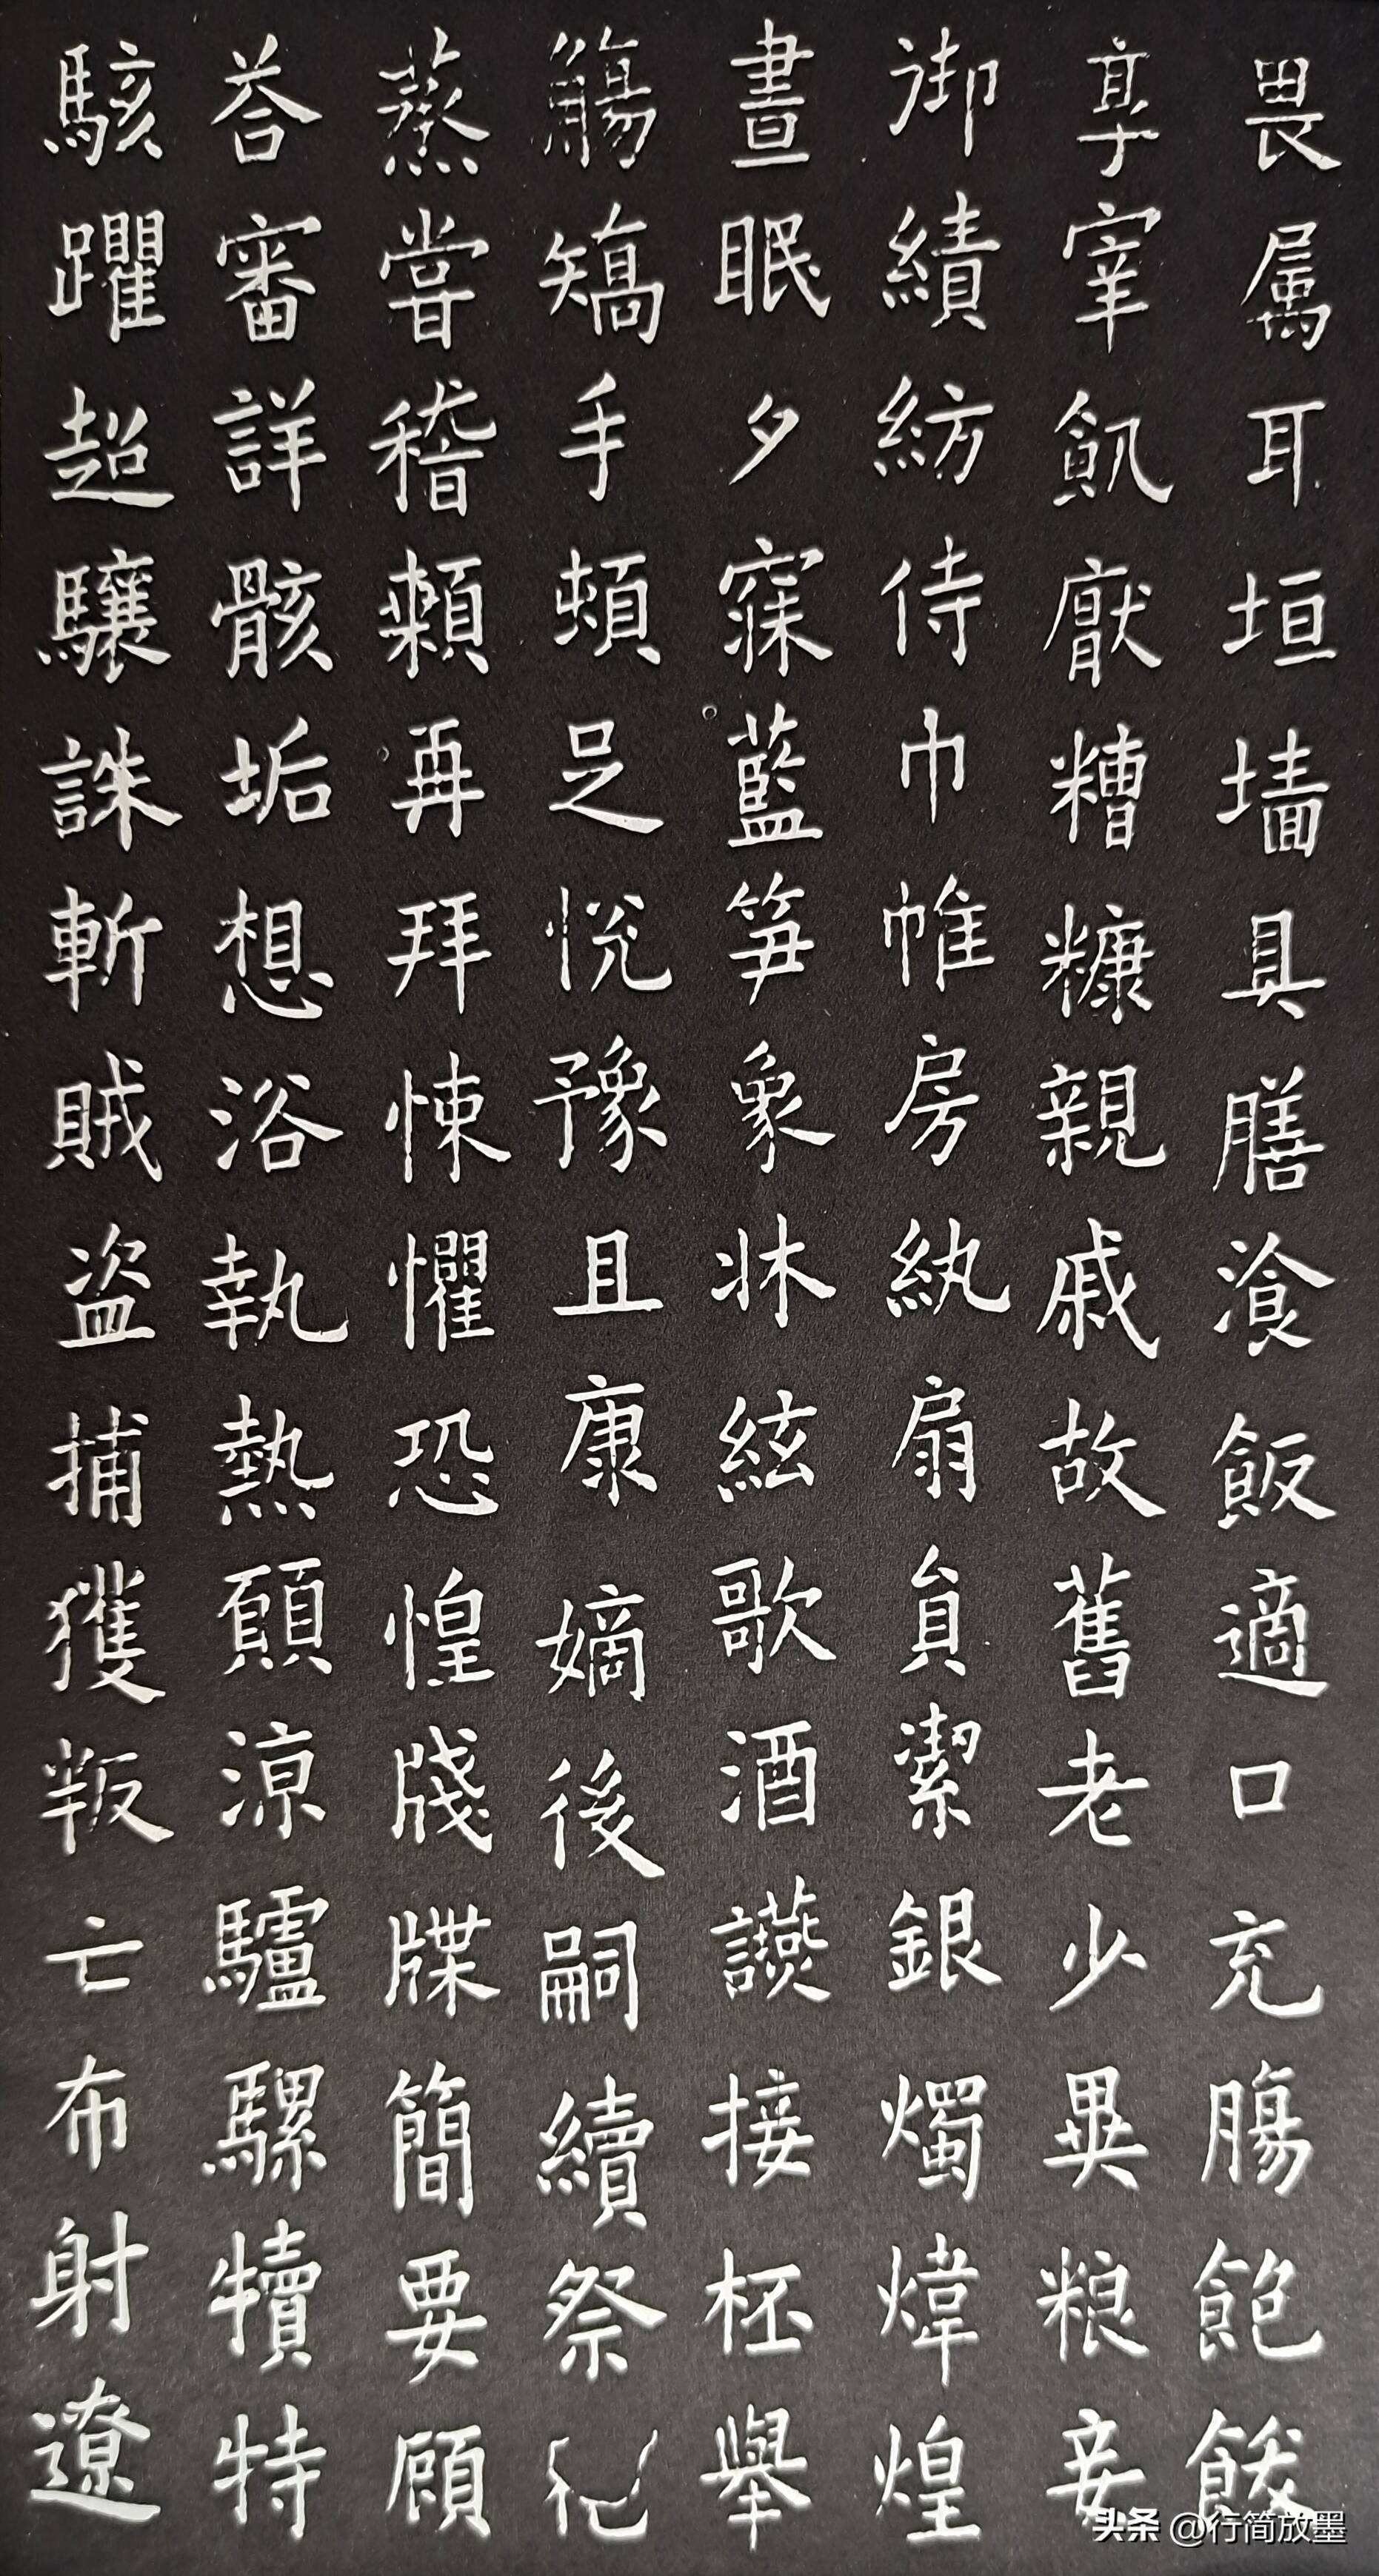 畏属耳垣墙具膳飡飯適口充腸飽飫
享宰飢厭糟糠親戚故舊老少異粮妾
御績紡侍巾帷房紈扇員潔銀燭煒煌
晝眠夕寐藍笋象牀絃歌酒讌接杯舉
觴矯手頓足悅豫且康嫡後嗣續祭祀
蒸嘗稽顙再拜悚懼恐惶牋牒簡要顧
荅審詳骸垢想浴執熱願涼驢騾犢特
駭躍超驤誅斬賊盗捕獲叛亡布射遼
头条 @行简放墨